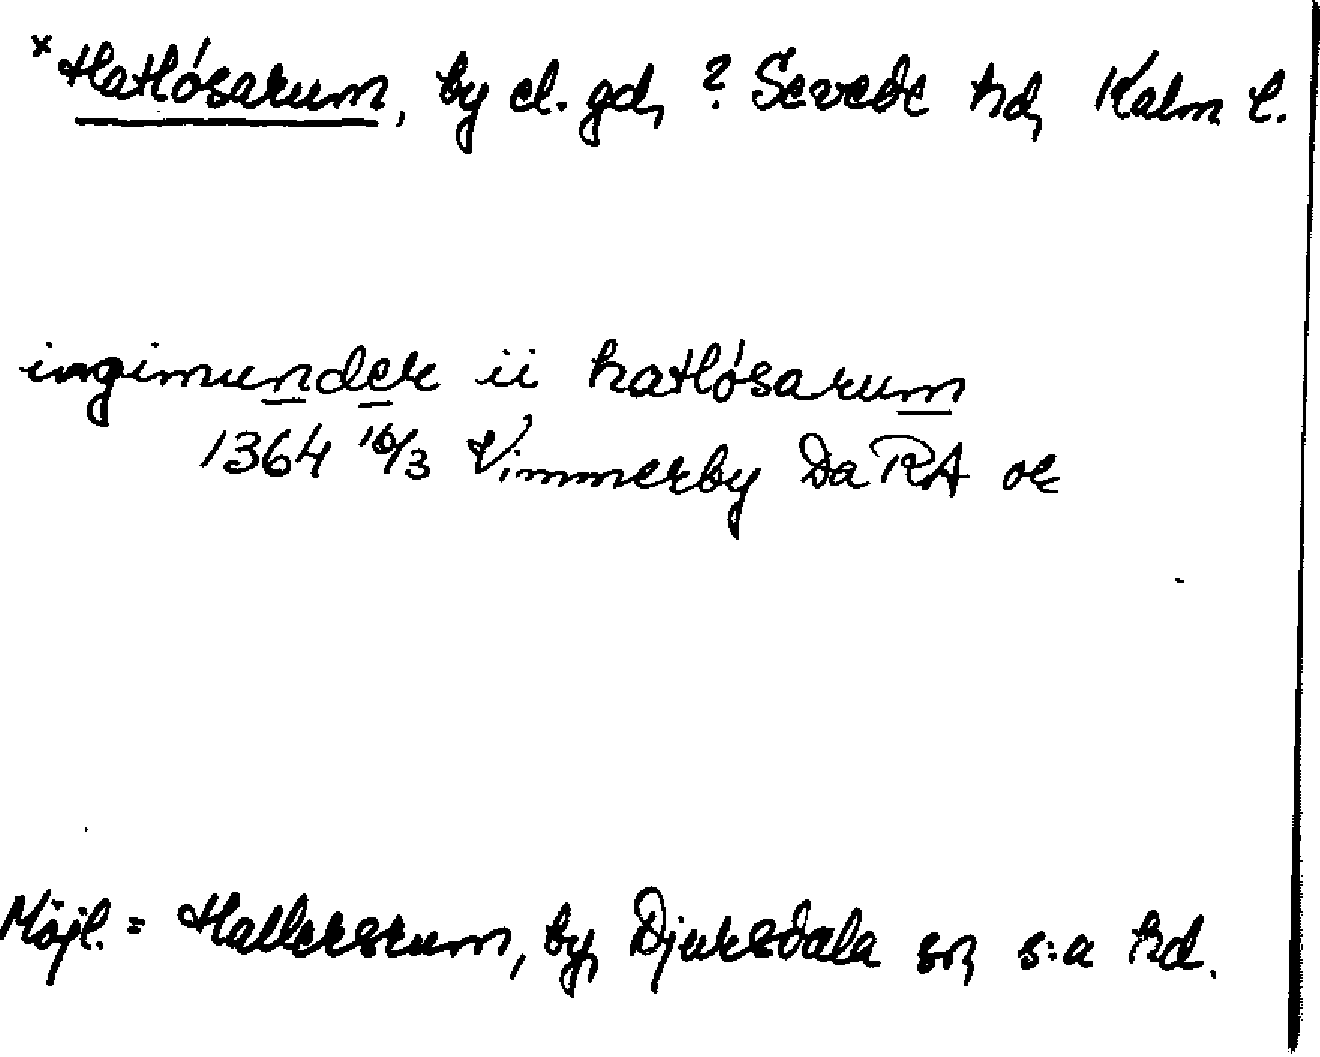 × Hatlósarum, by el. gd, ? Sevede hd, Kalm l.
ingimunder ii hatlósarum
1364 16/3 Vimmerby Da RA or
Möjl. = Hallersrum, by, Djursdala sn, s:a hd.